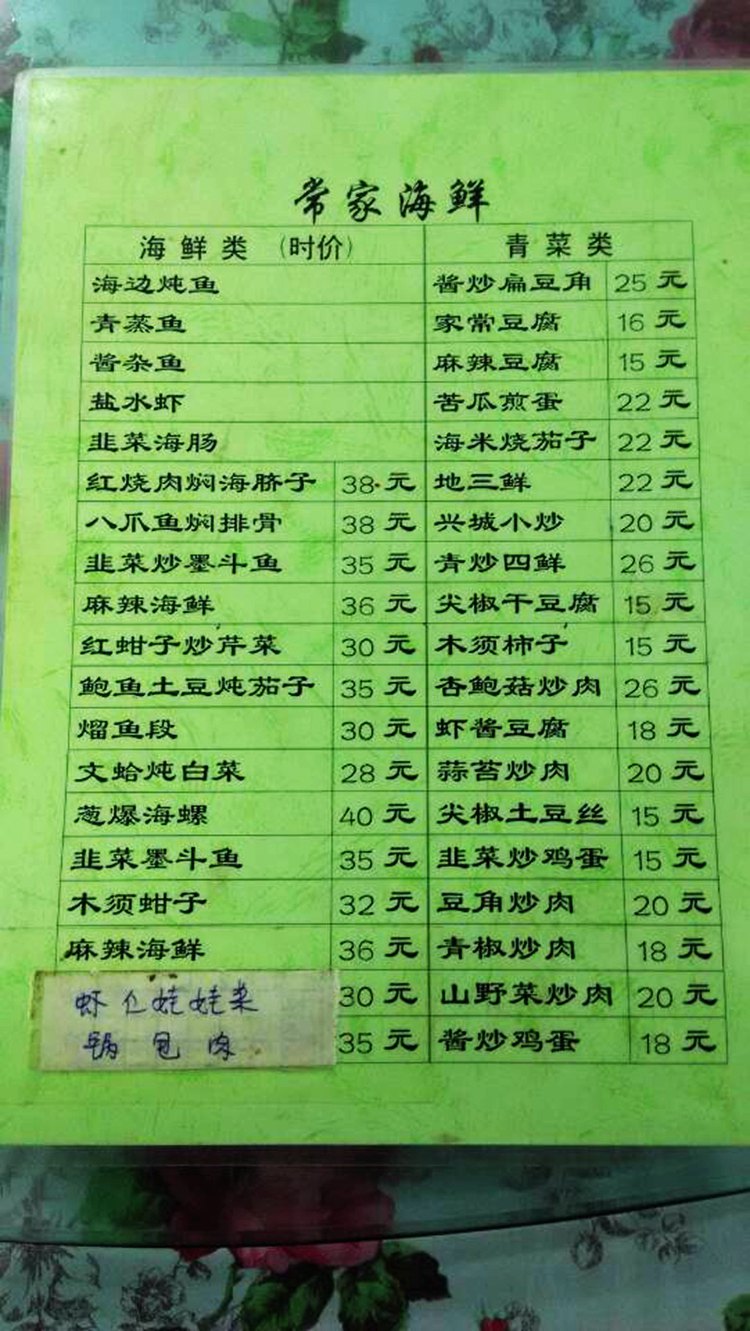 常家海鲜
海鲜类（时价） 青菜类
海边炖鱼 酱炒扁豆角 25元
青蒸鱼 家常豆腐 16元
酱杂鱼 麻辣豆腐 15元
盐水虾 苦瓜煎蛋 22元
韭菜海肠 海米烧茄子 22元
红烧肉焖海脐子 38元 地三鲜 22元
八爪鱼焖排骨 38元 兴城小炒 20元
韭菜炒墨斗鱼 35元 青炒四鲜 26元
麻辣海鲜 36元 尖椒干豆腐 15元
红蚶子炒芹菜 30元 木须柿子 15元
鲍鱼土豆炖茄子 35元 杏鲍菇炒肉 26元
熘鱼段 30元 虾酱豆腐 18元
文蛤炖白菜 28元 蒜苔炒肉 20元
葱爆海螺 40元 尖椒土豆丝 15元
韭菜墨斗鱼 35元 韭菜炒鸡蛋 15元
木须蚶子 32元 豆角炒肉 20元
麻辣海鲜 36元 青椒炒肉 18元
虾仁娃娃菜 30元 山野菜炒肉 20元
锅包肉 35元 酱炒鸡蛋 18元